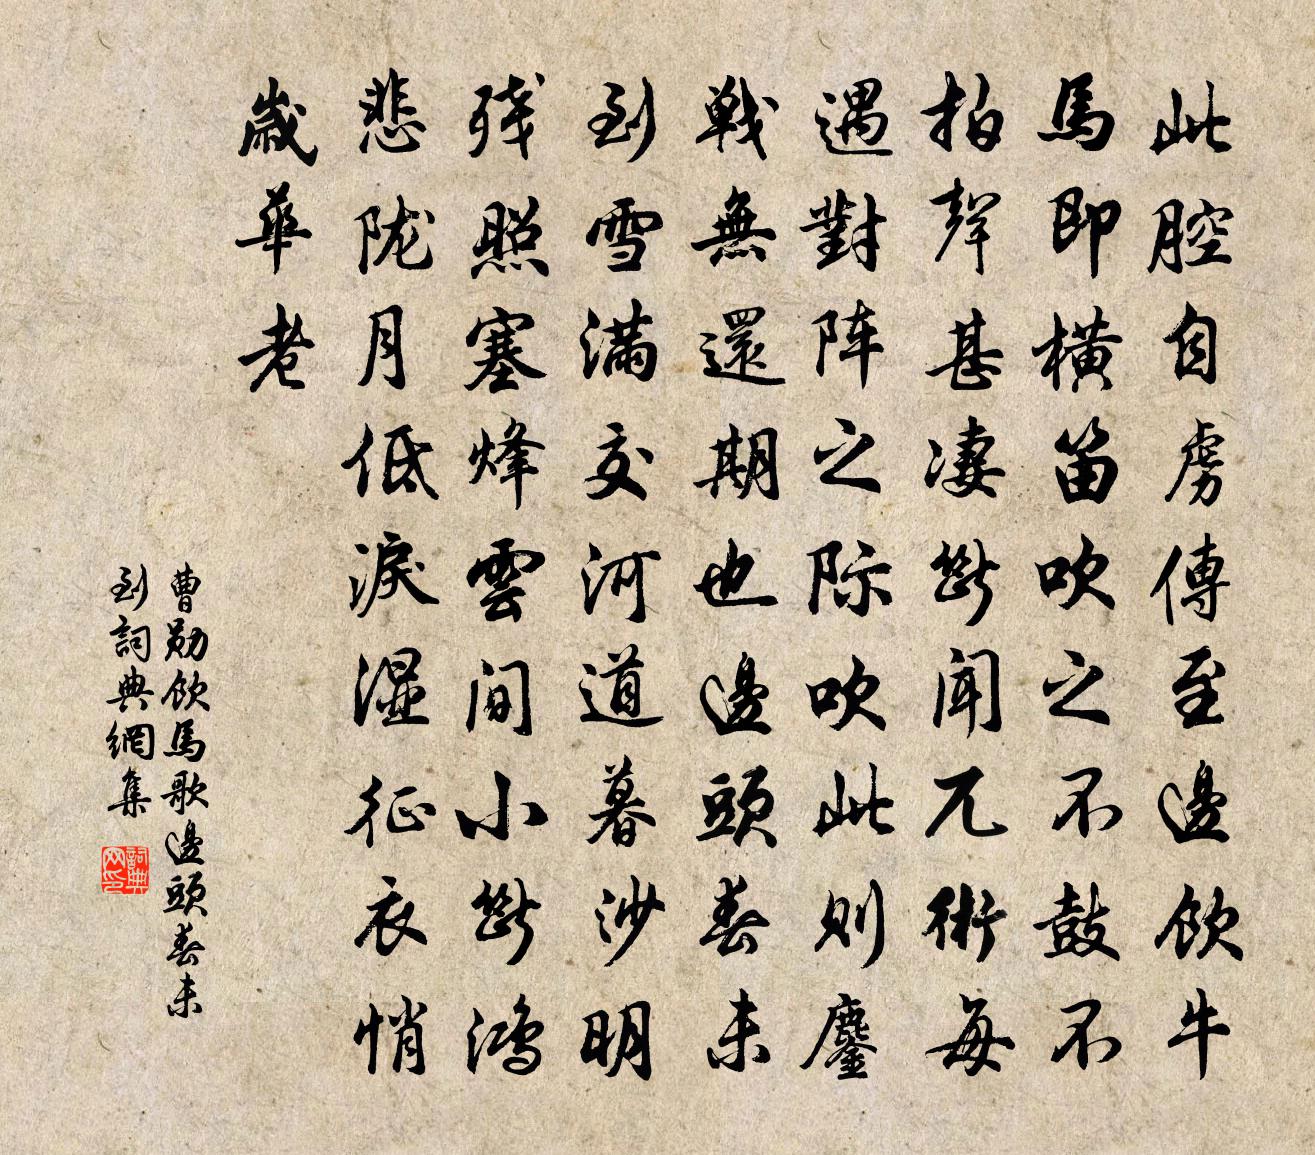 此腔自虜傳至邊飲牛
馬即橫笛吹之不鼓不
拍聲甚凄斷聞兀術每
遇對阵之际吹此則鏖
戰無還期也邊頭春未
到雪滿交河道暮沙明
殘照塞烽雲間小斷鴻
悲陇月低淚湿征衣悄
歲華老
曹勛飲馬歌邊頭春未
到詞典網集
詞典
网印